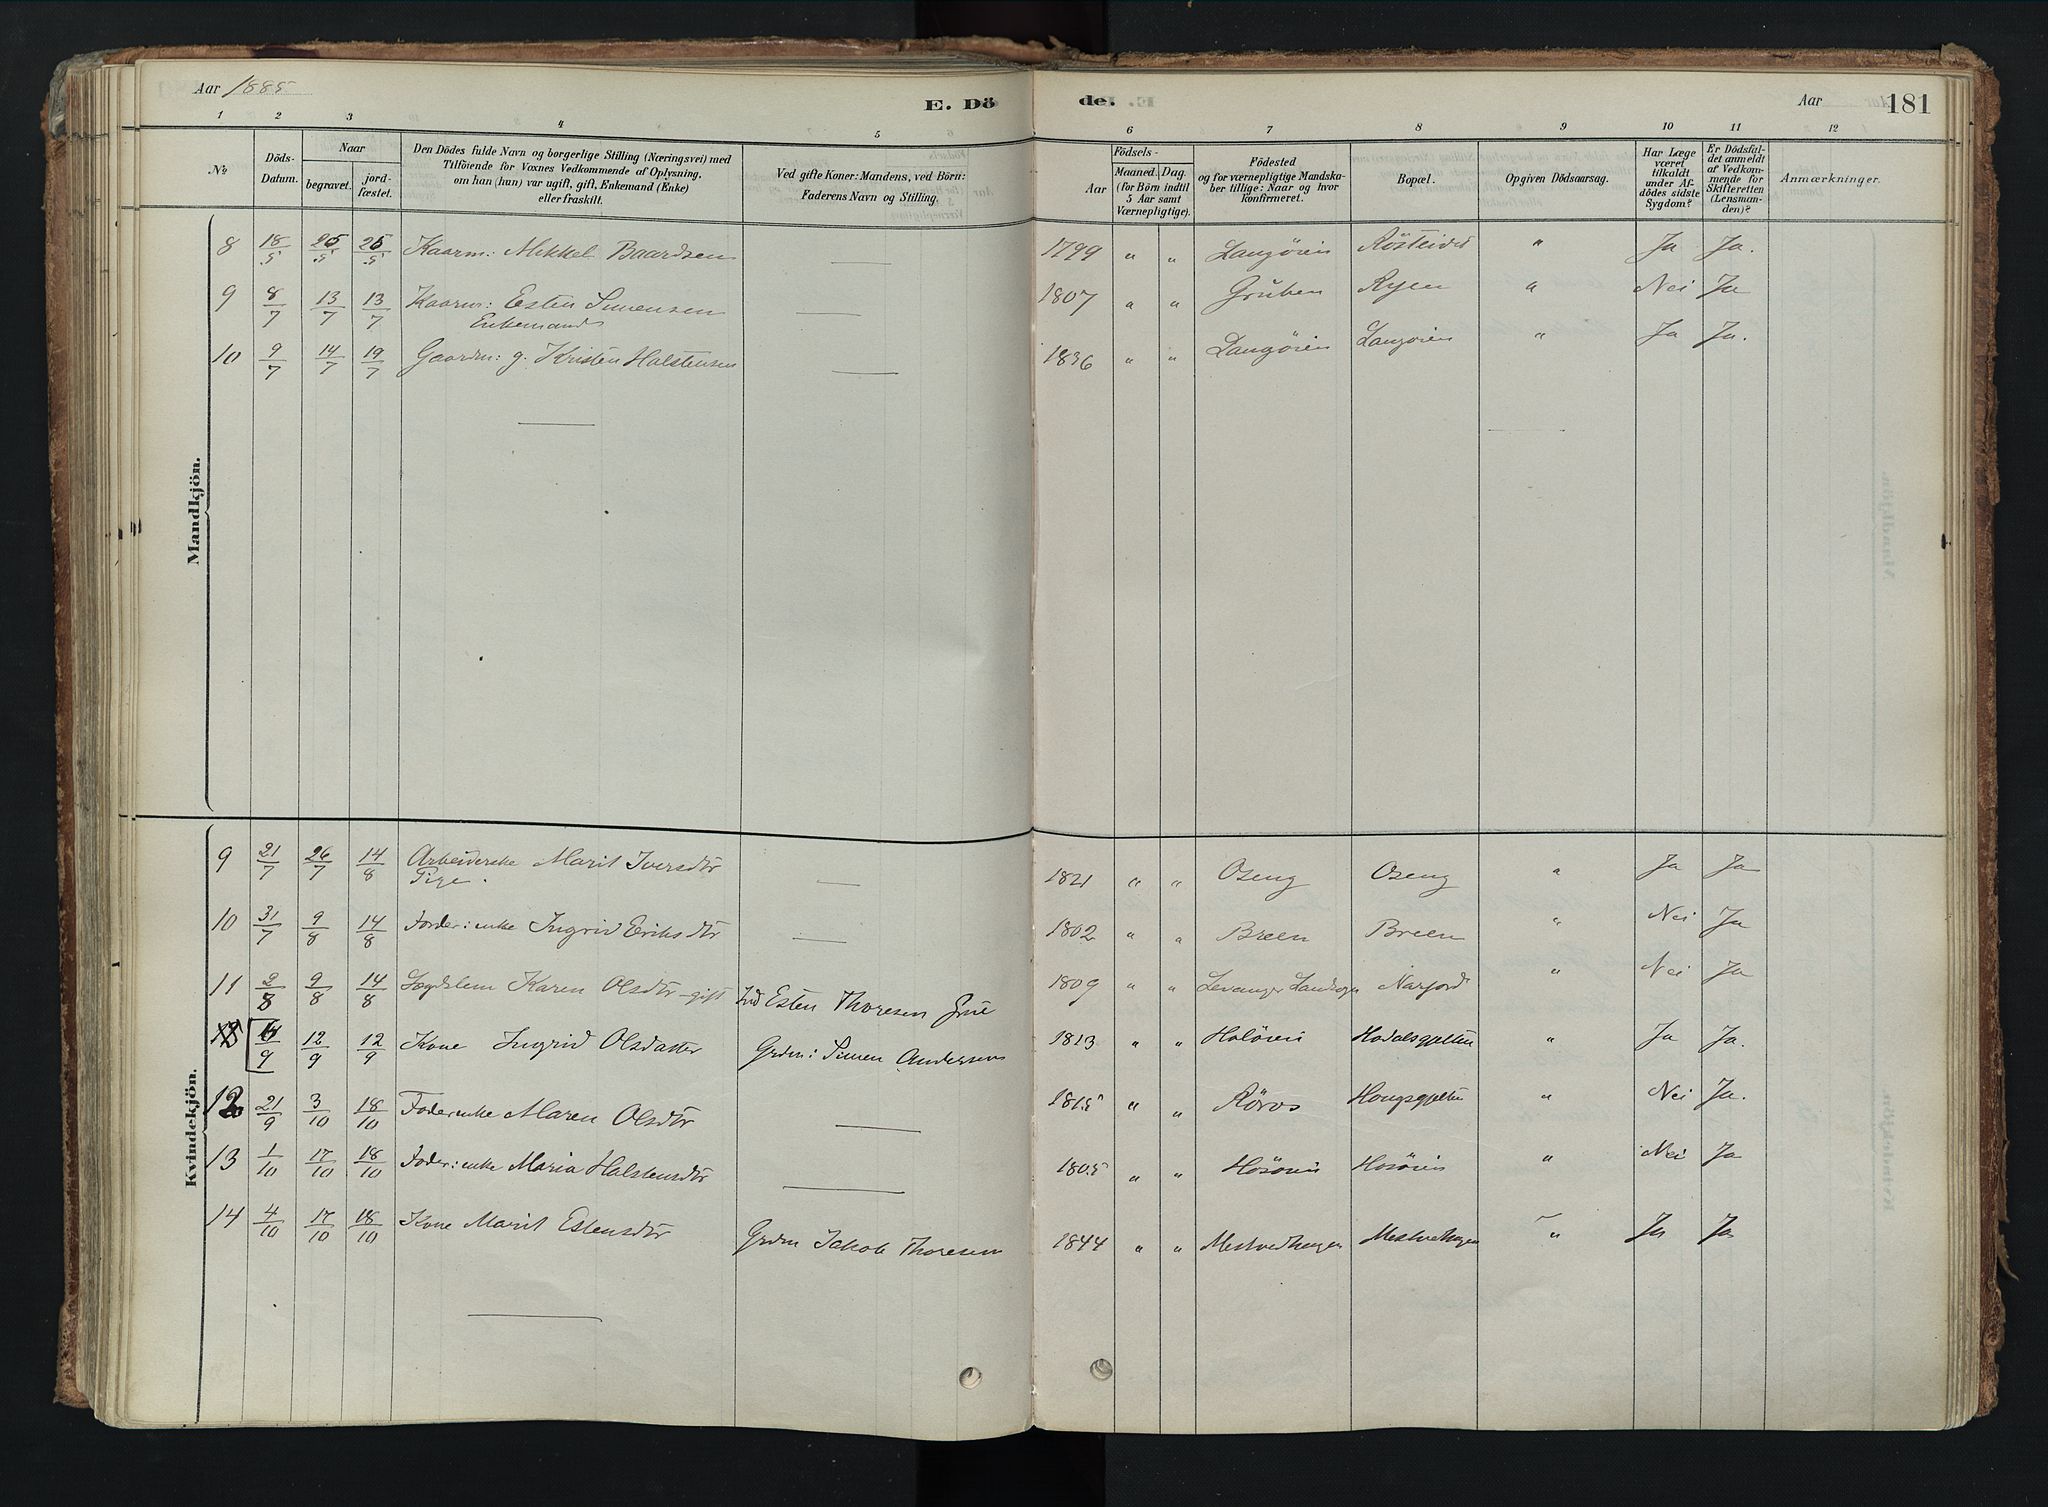 Aar 1885
E. Dö de.
Aar 181
1 2 3 4 5 6 7 8 9 10 11 12
No.
Döds-Datum.
Naar
begravet.
jord-fæstet.
Den Dödes fulde Navn og borgerlige Stilling (Næringsvei) med
Tilföiende for Voxnes Vedkommende af Oplysning,
om han (hun) var ugift, gift, Enkemand (Enke)
eller fraskilt.
Ved gifte Koner: Mandens, ved Börn:
Faderens Navn og Stilling.
Födsels-
Aar
Maaned. Dag.
(for Börn indtil
5 Aar samt
Værnepligtige).
Födested
og for værnepligtige Mandska-
ber tillige: Naar og hvor
konfirmeret.
Bopæl.
Opgiven Dödsaarsag.
Har Læge
været
tilkaldt
under Af-
dödes sidste
Sygdom?
Er Dödsfal-
det anmeldt
af Vedkom-
mende for
Skifteretten
(Lensman-
den)?
Anmærkninger.
Mandkjön.
8 18/5 25/5 25/5 Kaarm: Mikkel Baardsen — 1799 " " Langøien " Ja Ja.
9 8/7 13/7 13/7 Kaarm: Esten Simensen — 1807 " " Gruben Ryen " Nei Ja
Enkemand
10 9/7 14/7 19/7 Gaardm: g. Kristen Halstensen — 1836 " " Langøien Langøien " Ja Ja.
Kvindekjön.
9 21/7 26/7 14/8 Arbeiderske Marit Iversdtr — 1821 " " Oseng Oseng " Ja Ja
Pige.
10 31/7 9/8 14/8 Foder: enke Ingrid Eriksdtr — 1802 " " Breen Breen " Nei Ja
11 2/8 9/8 14/8 Lægdslem Karen Olsdtr - gift Ind Esten Thoresen Grue 1809 " " Levanger Landsogn Narjord " Nei Ja
/9 12/9 12/9 Kone Ingrid Olsdatter Grdm: Simen Andersen 1813 " " Holøien Hodalsgjelten " Ja Ja.
12 21/9 3/10 18/10 Foderenke Maren Olsdtr — 1815 " " Røros Hougsgjelten " Nei Ja.
13 1/10 17/10 18/10 Foder: enke Maria Halstensdtr — 1805 " " Hosøien Hosøien " Nei Ja
14 4/10 17/10 18/10 Kone Marit Estensdtr Grdm Jakob Thoresen 1844 " " Mestvedhagen Mestvedhagen " Ja Ja